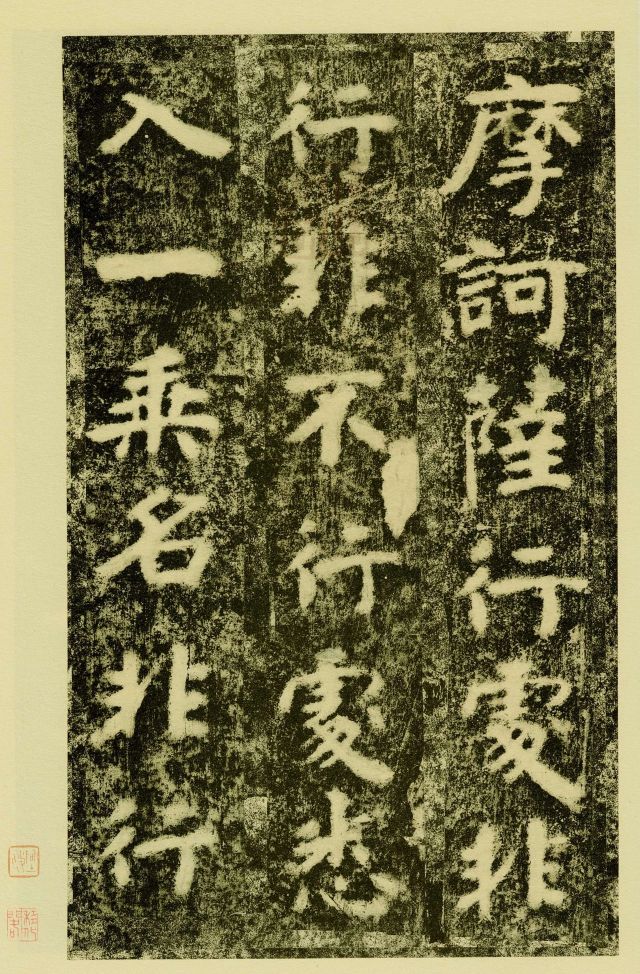 摩訶薩行處非
行非不行處悉
入一乘名非行